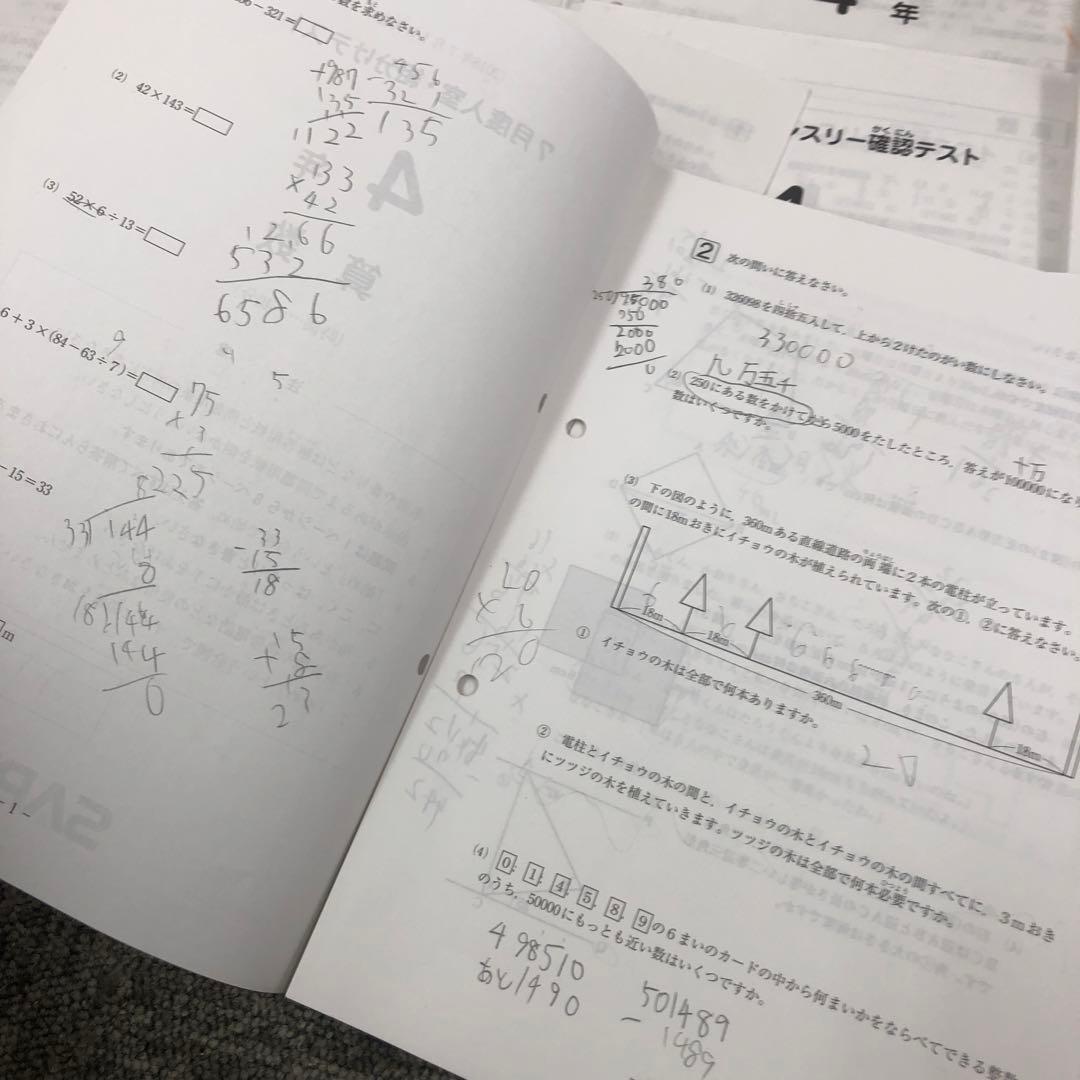 数を求めなさい。
-321=
(2) 42×143=
(3) 52×6÷13=
6+3×(84-63÷7)=
-15=33
m
- 1 -
+987
135
1122
-456
321
135
133
×42
1266
532
6586
9
4
5
75
×3
225
8
33)144
8
18)144
144
0
33
-15
18
15
+8
23
年
ンスリー確認テスト
かくにん
4
2 次の問いに答えなさい。
(1) 326098を四捨五入して，上から2けたのがい数にしなさい。
330000
380
250)95000
750
2000
2000
0
九万五千
(2) 250にある数をかけてから5000をたしたところ，答えが100000にな
数はいくつですか。
十万
(3) 下の図のように，360mある直線道路の両端に2本の電柱が立っています。
の間に18mおきにイチョウの木が植えられています。次の①，②に答えなさい。
18m
18m
360m
18m
① イチョウの木は全部で何本ありますか。
20
20
×6
120
② 電柱とイチョウの木の間と，イチョウの木とイチョウの木の間すべてに，3mおき
にツツジの木を植えていきます。ツツジの木は全部で何本必要ですか。
(4) 0，1，4，5，8，9の6まいのカードの中から何まいかをならべてできる整数
のうち，50000にもっとも近い数はいくつですか。
498510
あと1490
501489
- 1489